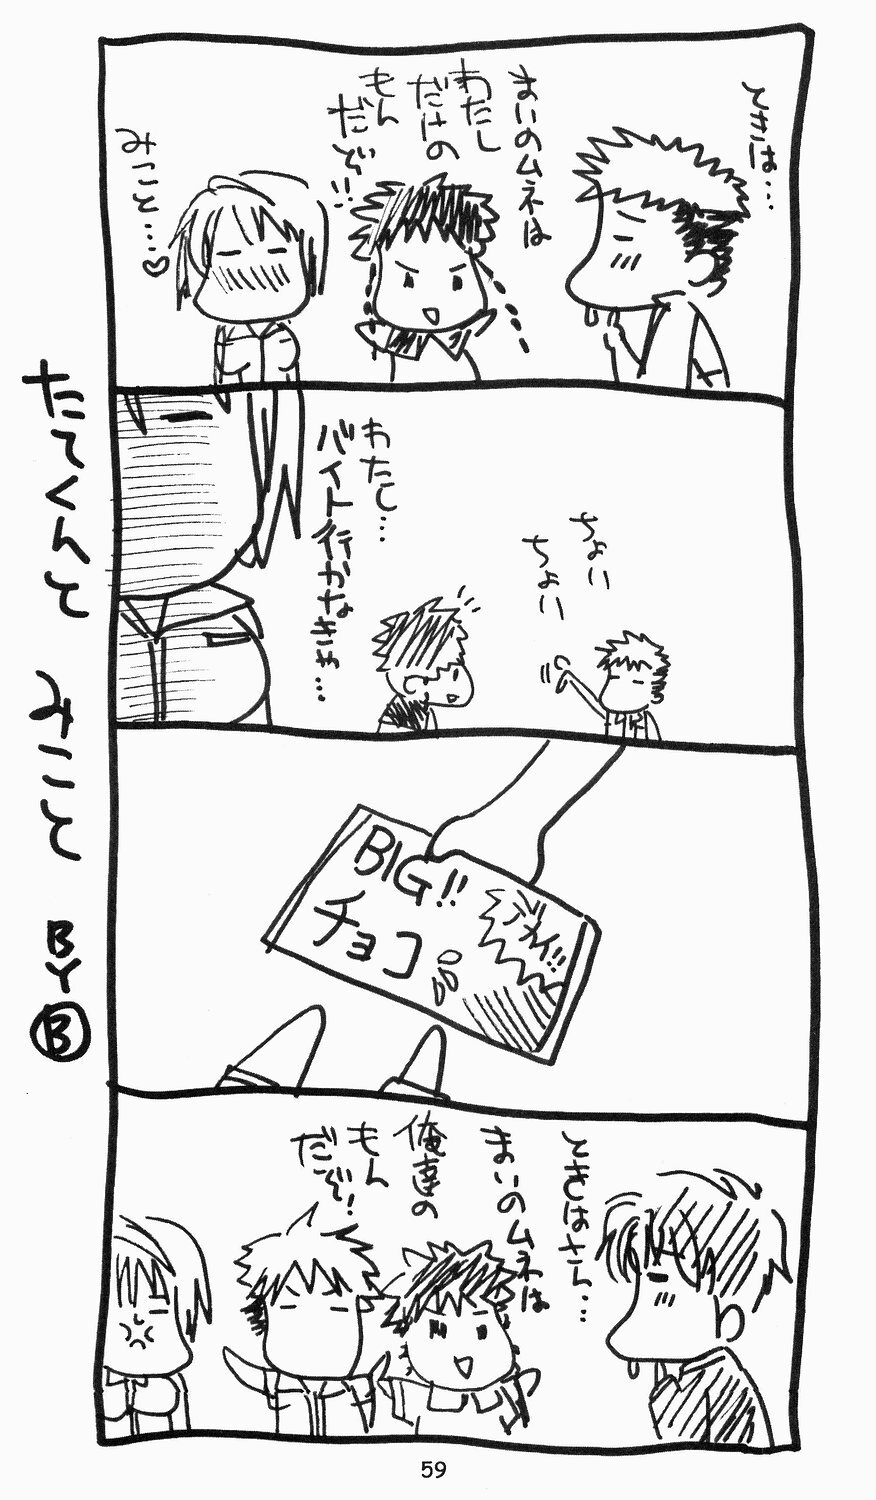 ときは…
まいのムネは
わたし
だけの
もん
だぞ!!
みこと…♡
ちょい
ちょい
わたし…
バイト行かなきゃ…
BIG!!
チョコ
ときはさん…
まいのムネは
俺達の
もん
だぞ!
たてくんと みこと BY Ⓑ
59